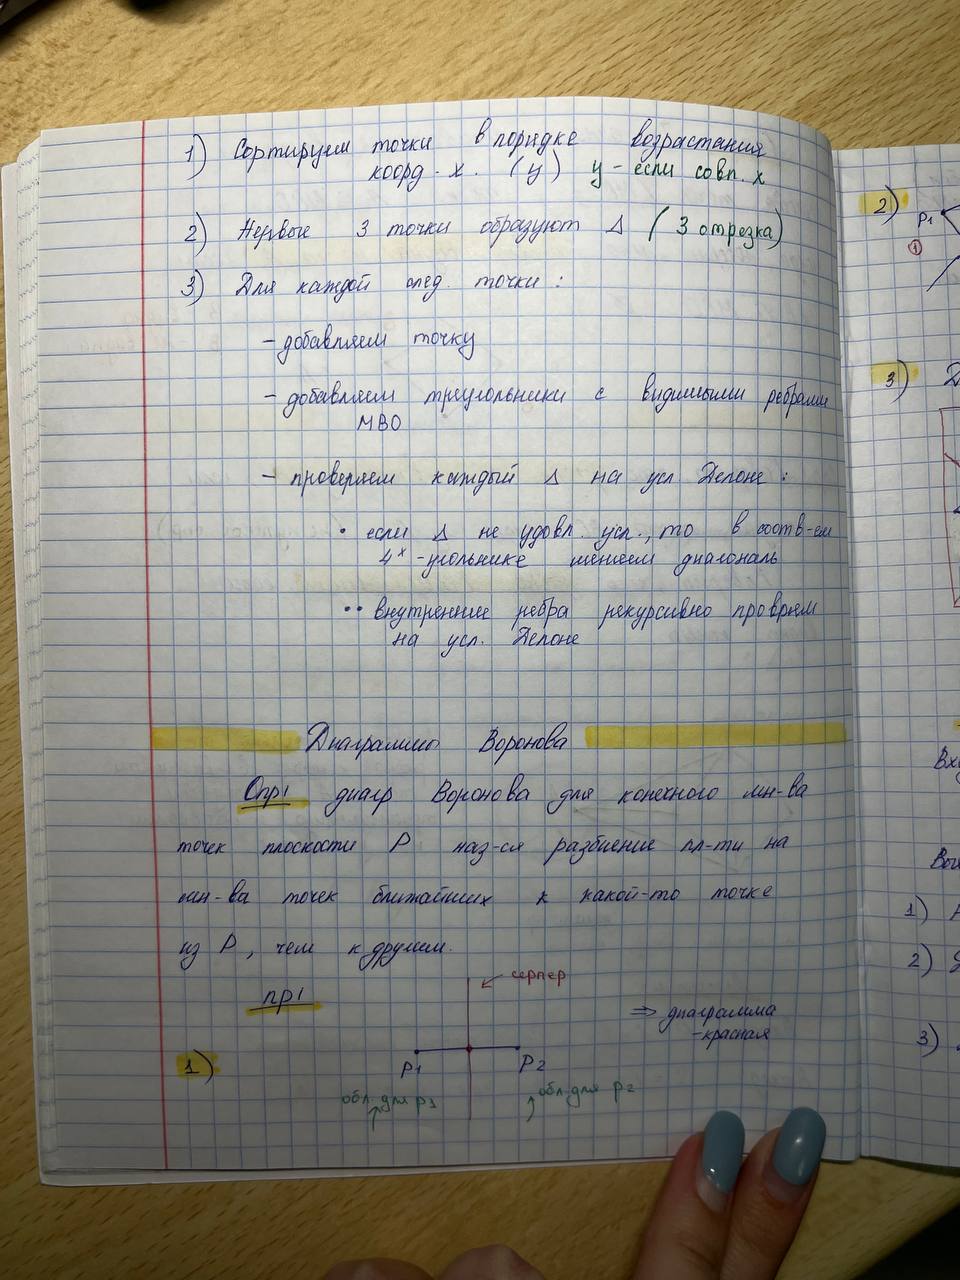 1) Сортируем точки в порядке возрастания
коорд. x. (y) y - если совп. x
2) Первые 3 точки образуют Δ (3 отрезка)
3) Для каждой след. точки:
- добавляем точку
- добавляем треугольники с видимыми ребрами
МВО
- проверяем каждый Δ на усл Делоне:
• если Δ не удовл. усл., то в соотв-ем
4х-угольнике меняем диагональ
•• внутренние ребра рекурсивно проврем
на усл. Делоне
Диаграммы Воронова
Опр1 диагр Воронова для конечного мн-ва
точек плоскости P наз-ся разбиение пл-ти на
мн-ва точек ближайших к какой-то точке
из P, чем к другим.
пр1
← серпер
⇒ диаграмма
-красная
1)
P1 P2
обл. для p1 обл. для p2
2)
P1
1
3)
1)
2)
3)